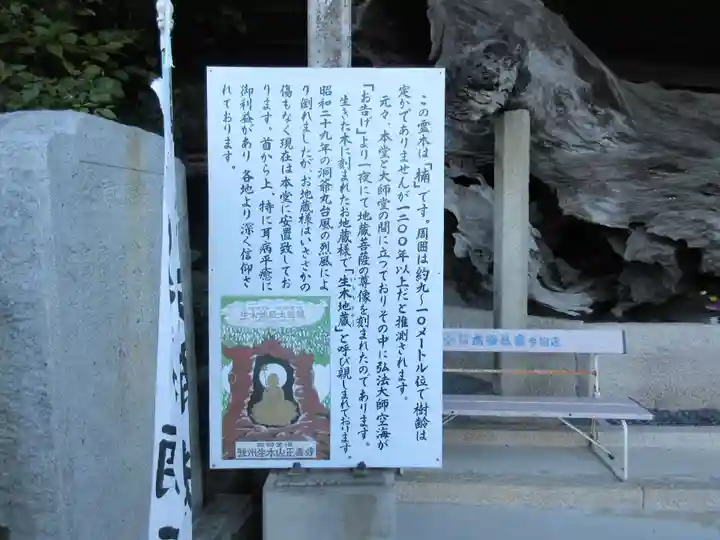 この霊木は「楠」です。周囲は約九〜一〇メートル位で樹齢は
定かでありませんが一二〇〇年以上だと推測されます。
元々、本堂と大師堂の間に立っておりその中に弘法大師空海が
「お告げ」より一夜にて地蔵菩薩の尊像を刻まれたのであります。
生きた木に刻まれたお地蔵様で「生木地蔵」と呼び親しまれております。
昭和二十九年の洞爺丸台風の烈風によ
り倒れましたが、お地蔵様はいささかの
傷もなく現在は本堂に安置致してお
ります。首から上、特に耳病平癒に
御利益があり各地より深く信仰さ
れております。
生木地蔵大菩薩
生木山正善寺